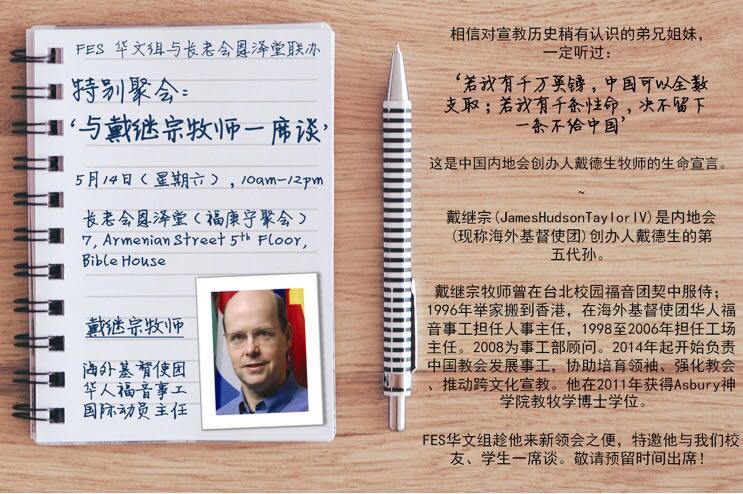 FES 华文组与长老会恩泽堂联办
特别聚会：
‘与戴继宗牧师一席谈’
5月14日（星期六），10am-12pm
长老会恩泽堂（福康宁聚会）
7, Armenian Street 5th Floor,
Bible House
戴继宗牧师
海外基督使团
华人福音事工
国际动员主任
相信对宣教历史稍有认识的弟兄姐妹，
一定听过：
‘若我有千万英镑，中国可以全数
支取；若我有千条性命，决不留下
一条不给中国’
这是中国内地会创办人戴德生牧师的生命宣言。
~
戴继宗(JamesHudsonTaylorIV)是内地会
(现称海外基督使团)创办人戴德生的第
五代孙。
戴继宗牧师曾在台北校园福音团契中服侍；
1996年举家搬到香港，在海外基督使团华人福
音事工担任人事主任，1998至2006年担任工场
主任。2008为事工部顾问。2014年起开始负责
中国教会发展事工，协助培育领袖、强化教会
、推动跨文化宣教。他在2011年获得Asbury神
学院教牧学博士学位。
FES华文组趁他来新领会之便，特邀他与我们校
友、学生一席谈。敬请预留时间出席！